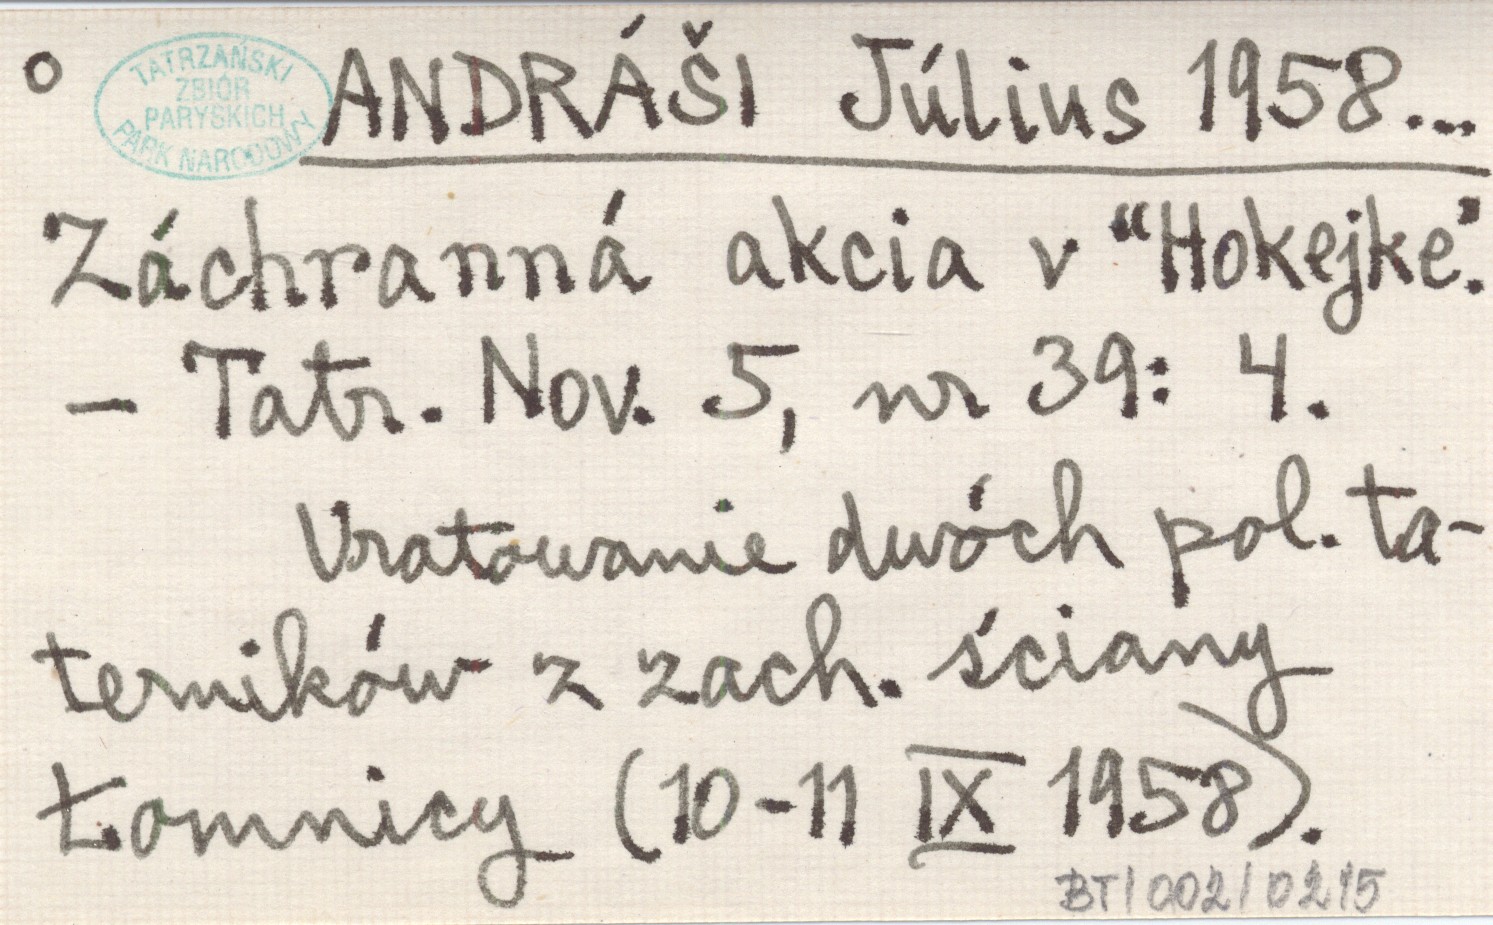 TATRZAŃSKI
ZBIÓR
PARYSKICH
PARK NARODOWY
ANDRÁŠI Július 1958...
Záchranná akcia v "Hokejke".
- Tatr. Nov. 5, nr 39: 4.
Uratowanie dwóch pol. ta-
terników z zach. ściany
Łomnicy (10-11 IX 1958).
BT/002/0215